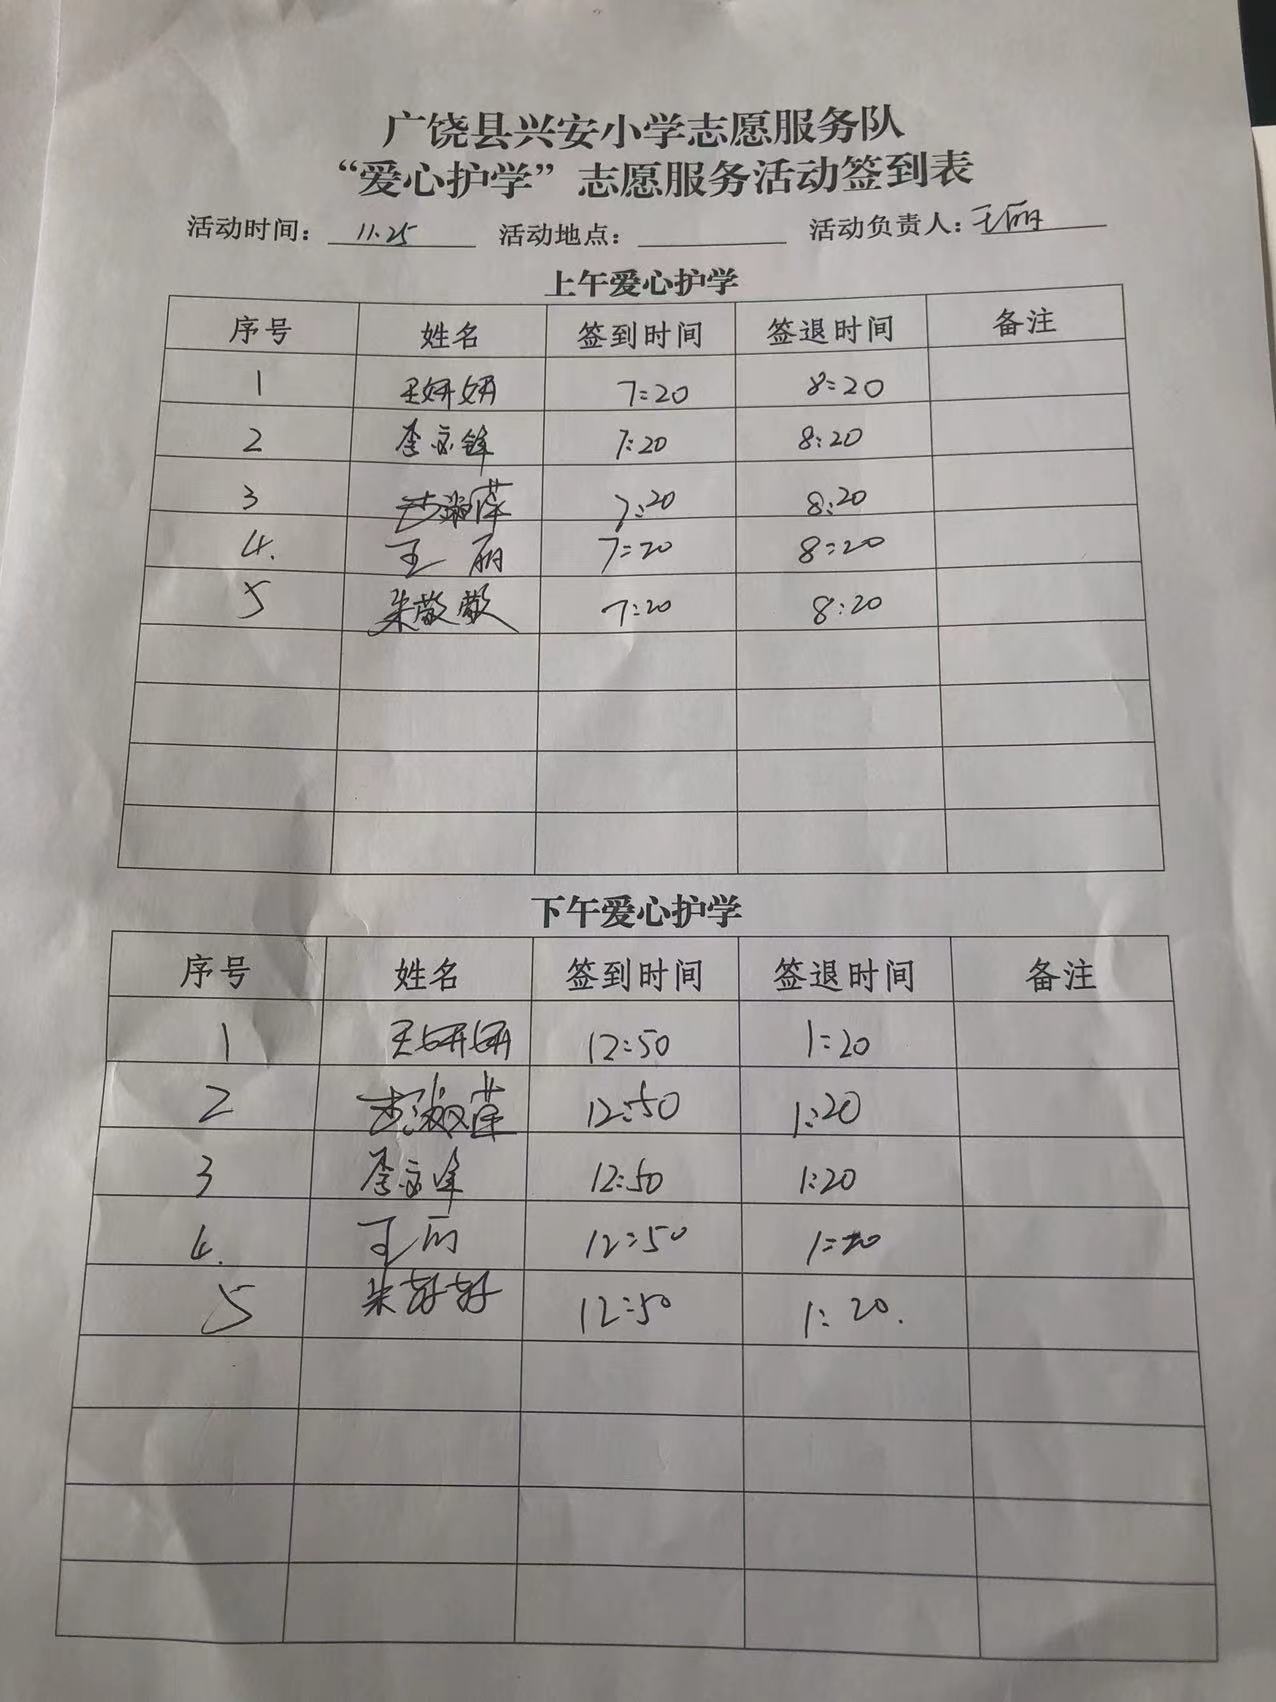 广饶县兴安小学志愿服务队
“爱心护学”志愿服务活动签到表
活动时间：11.25 活动地点： 活动负责人：王丽
上午爱心护学
序号 姓名 签到时间 签退时间 备注
1 王妍妍 7:20 8:20
2 李 7:20 8:20
3 7:20 8:20
4. 王丽 7:20 8:20
5 朱敬敬 7:20 8:20
下午爱心护学
序号 姓名 签到时间 签退时间 备注
1 王妍妍 12:50 1:20
2 12:50 1:20
3 李 12:50 1:20
4. 王丽 12:50 1:20
5 朱 12:50 1:20.